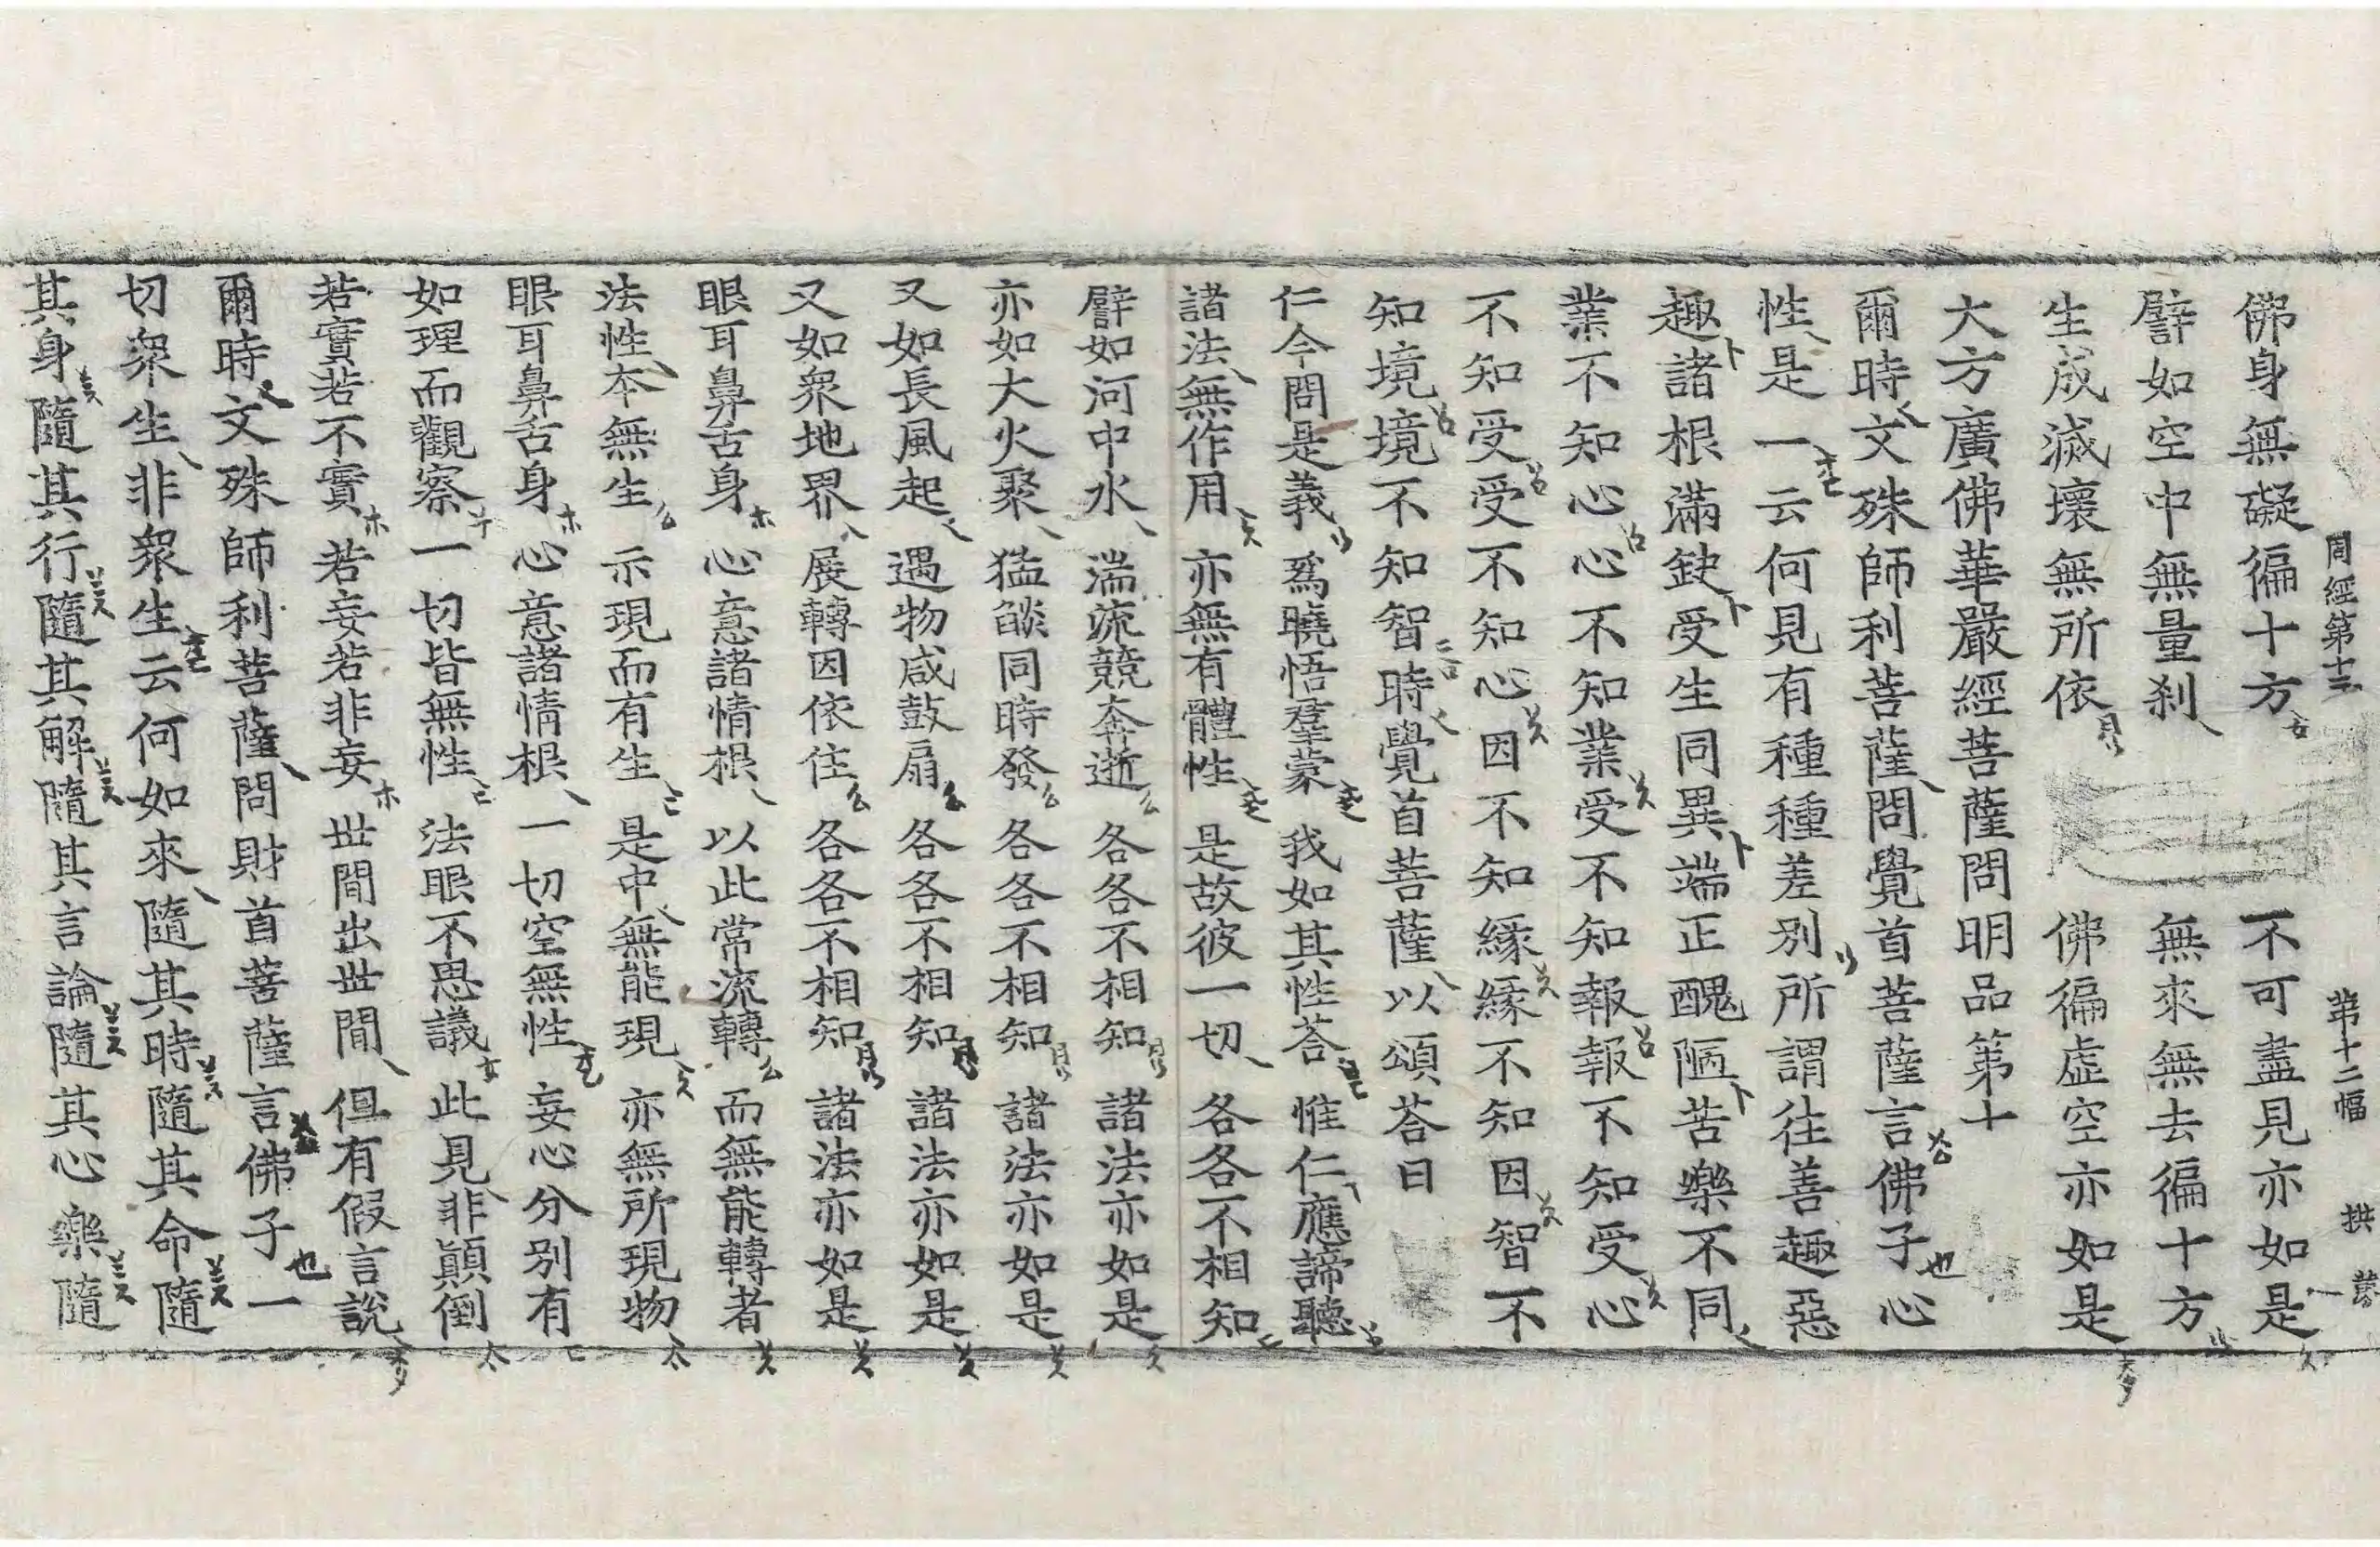 周經第十三 第十二幅 拱
佛身無礙徧十方 不可盡見亦如是
譬如空中無量刹 無來無去徧十方
生成滅壞無所依 佛徧虛空亦如是
大方廣佛華嚴經菩薩問明品第十
爾時文殊師利菩薩問覺首菩薩言佛子心
性是一云何見有種種差別所謂往善趣惡
趣諸根滿缺受生同異端正醜陋苦樂不同
業不知心心不知業受不知報報不知受心
不知受受不知心因不知緣緣不知因智不
知境境不知智時覺首菩薩以頌荅曰
仁今問是義 爲曉悟羣蒙 我如其性荅 惟仁應諦聽
諸法無作用 亦無有體性 是故彼一切 各各不相知
譬如河中水 湍流競奔逝 各各不相知 諸法亦如是
亦如大火聚 猛燄同時發 各各不相知 諸法亦如是
又如長風起 遇物咸鼓扇 各各不相知 諸法亦如是
又如衆地界 展轉因依住 各各不相知 諸法亦如是
眼耳鼻舌身 心意諸情根 以此常流轉 而無能轉者
法性本無生 示現而有生 是中無能現 亦無所現物
眼耳鼻舌身 心意諸情根 一切空無性 妄心分別有
如理而觀察 一切皆無性 法眼不思議 此見非顚倒
若實若不實 若妄若非妄 世間出世間 但有假言說
爾時文殊師利菩薩問財首菩薩言佛子一
切衆生非衆生云何如來隨其時隨其命隨
其身隨其行隨其解隨其言論隨其心樂隨